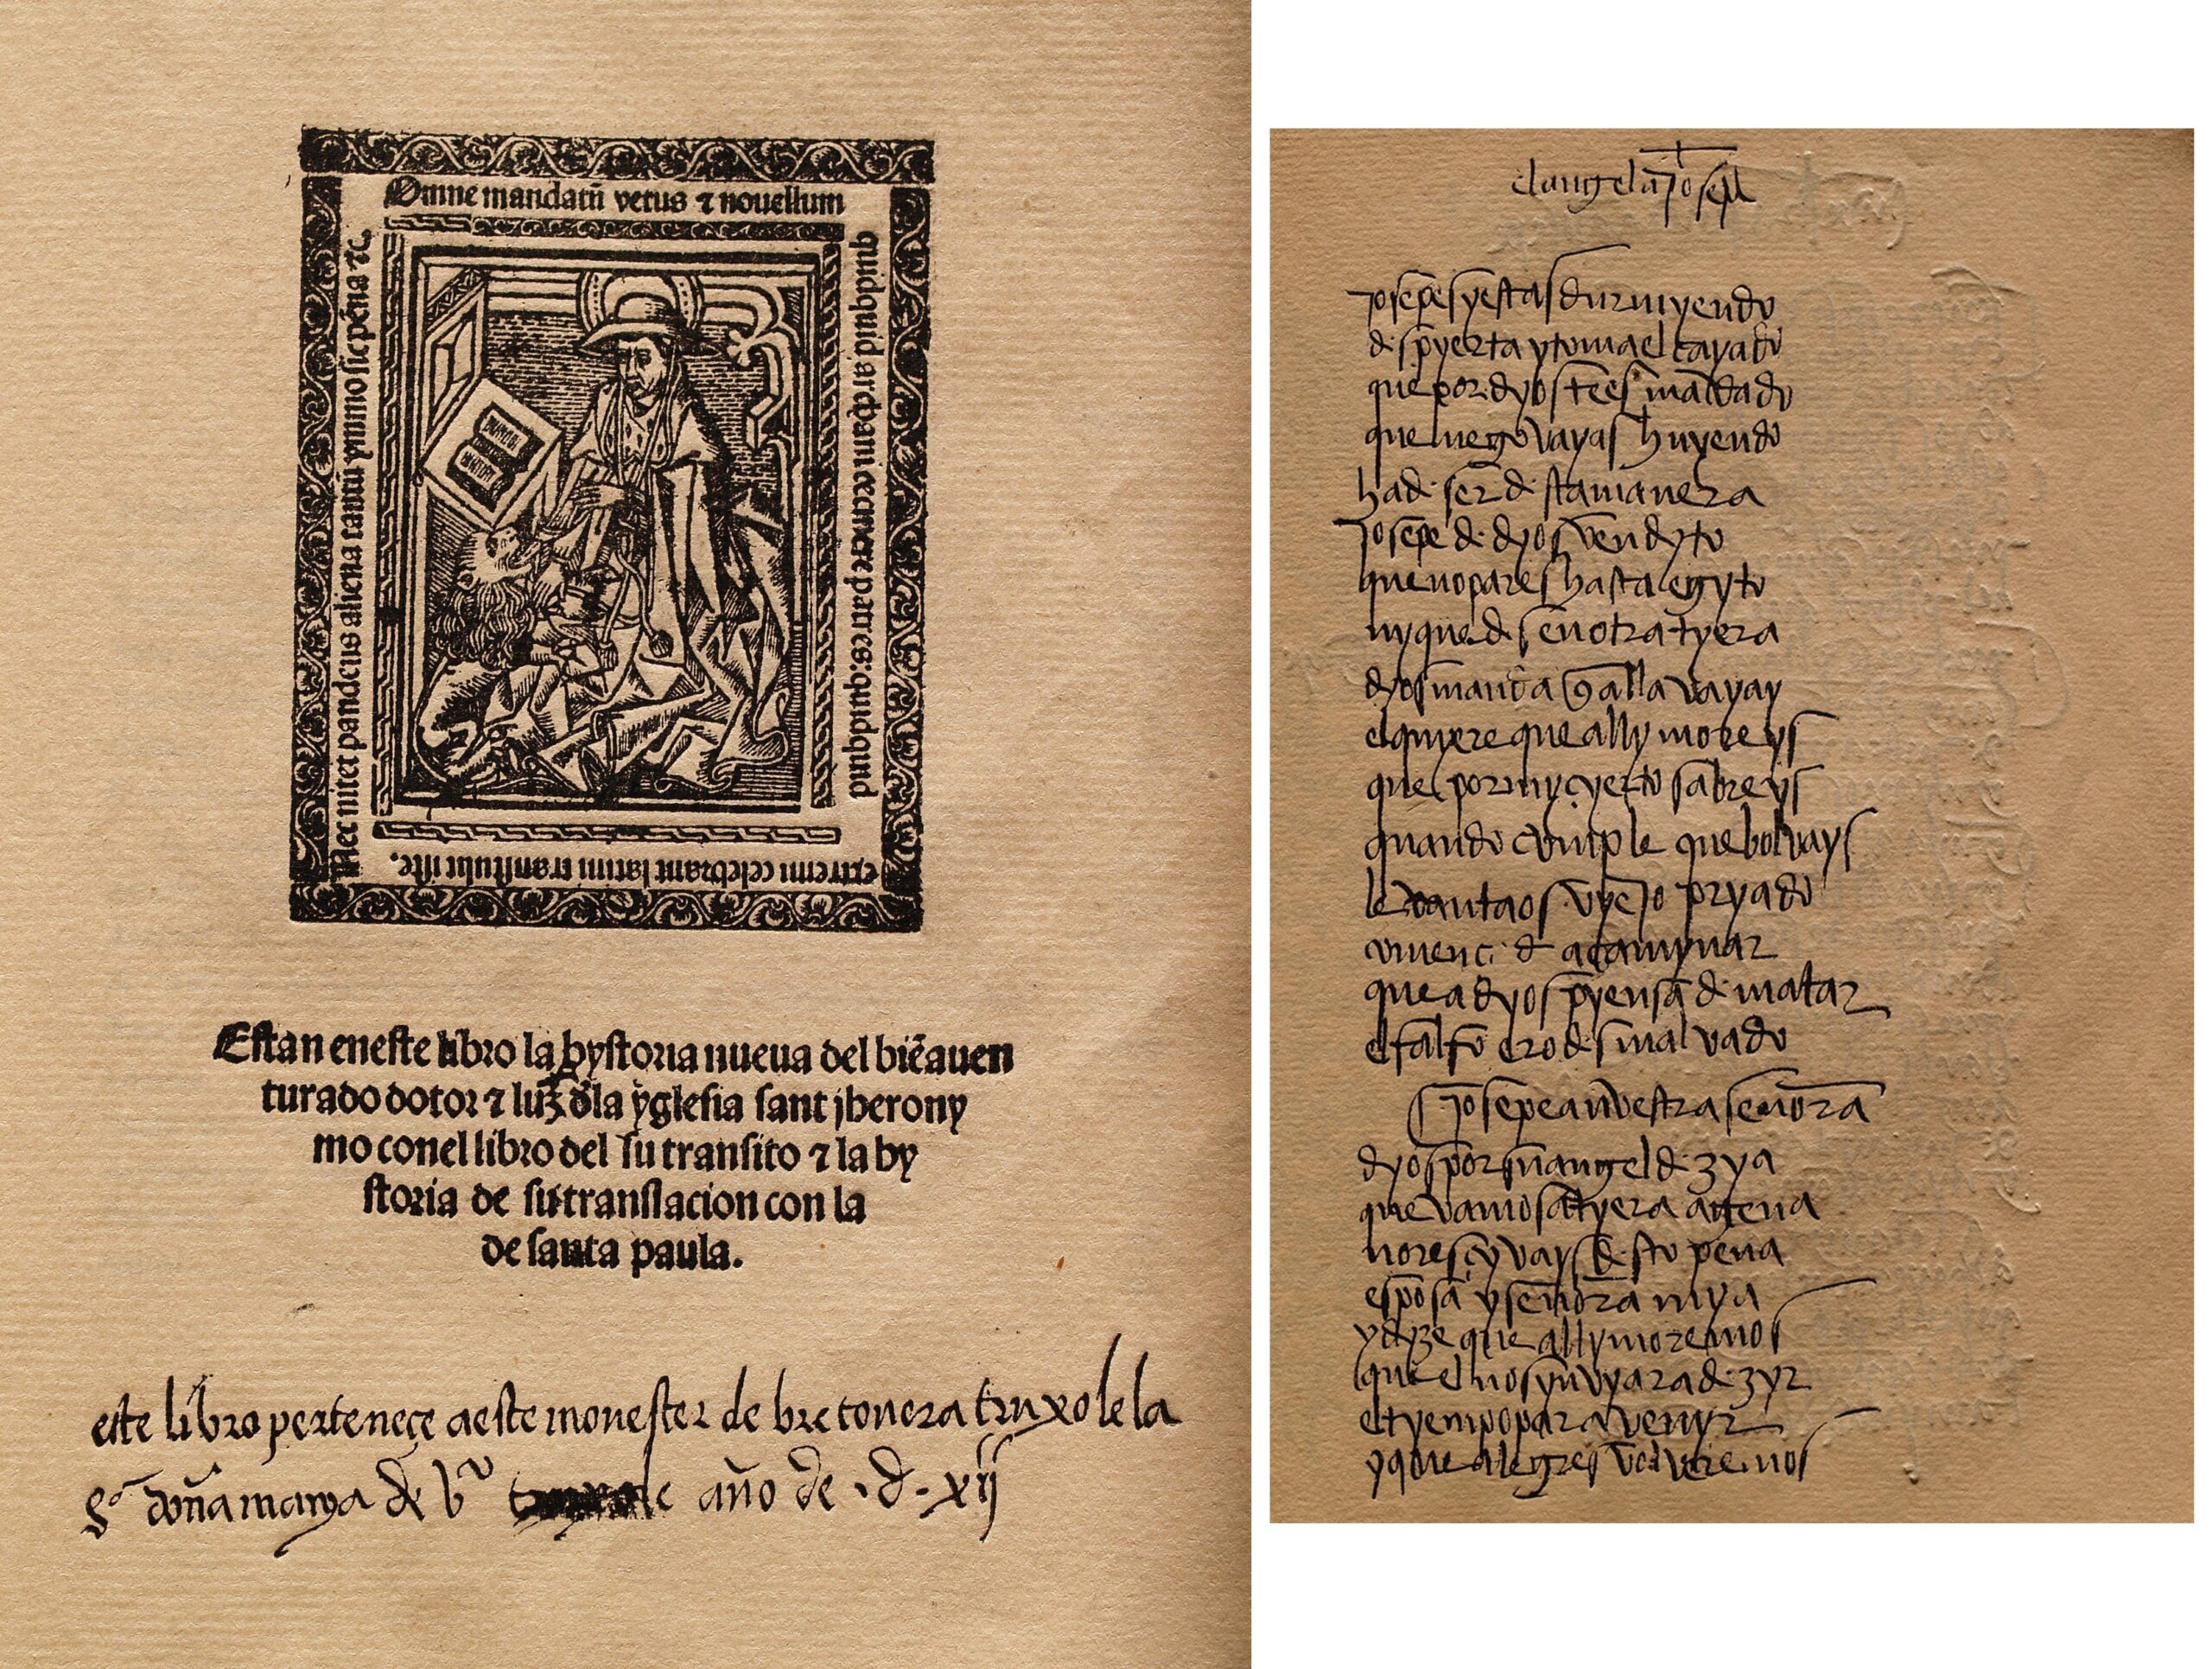 Omne mandatũ vetus ⁊ nouellum
quidquid archani cecinere patres: quidquid
extremi celebrant latini transtulit iste.
Nec nitet pandens aliena tantũ ymmo sic pẽna ⁊c
Estan eneste libro la hystoria nueua del biẽauen
turado dotor ⁊ luz dla yglesia sant jherony
mo conel libro del su transito ⁊ la hy
storia de su translacion con la
de santa paula.
este libro perteneçe aeste monester de bretonera truxolela
Sª doña marya de vº año de .d. xij
el angel a Josepe
Josepe sy estas durmyendo
despyerta y toma el cayado
que por dyos te es mãdado
que luego vayas huyendo
ha de ser desta manera
Josepe de dyos vendyto
que no pares hasta egyto
ny quedes en otra tyera
dyos manda q̃ alla vayay
el quyere que ally moreys
que por my çyerto sabreys
quando cumple que bolvays
levantaos vyejo pryado
comenc:d a camynar
que a dyos pyensã de matar
el falso erodes malvado
Josepe a nuestra señora
dyos por su angel dezya
que vamos a tyera agena
no resçyvays desto pena
esposa y señora mya
y dyze que ally moremos
que el nos ynvyara dezyr
el tyempo para venyr
y que alegres volveremos